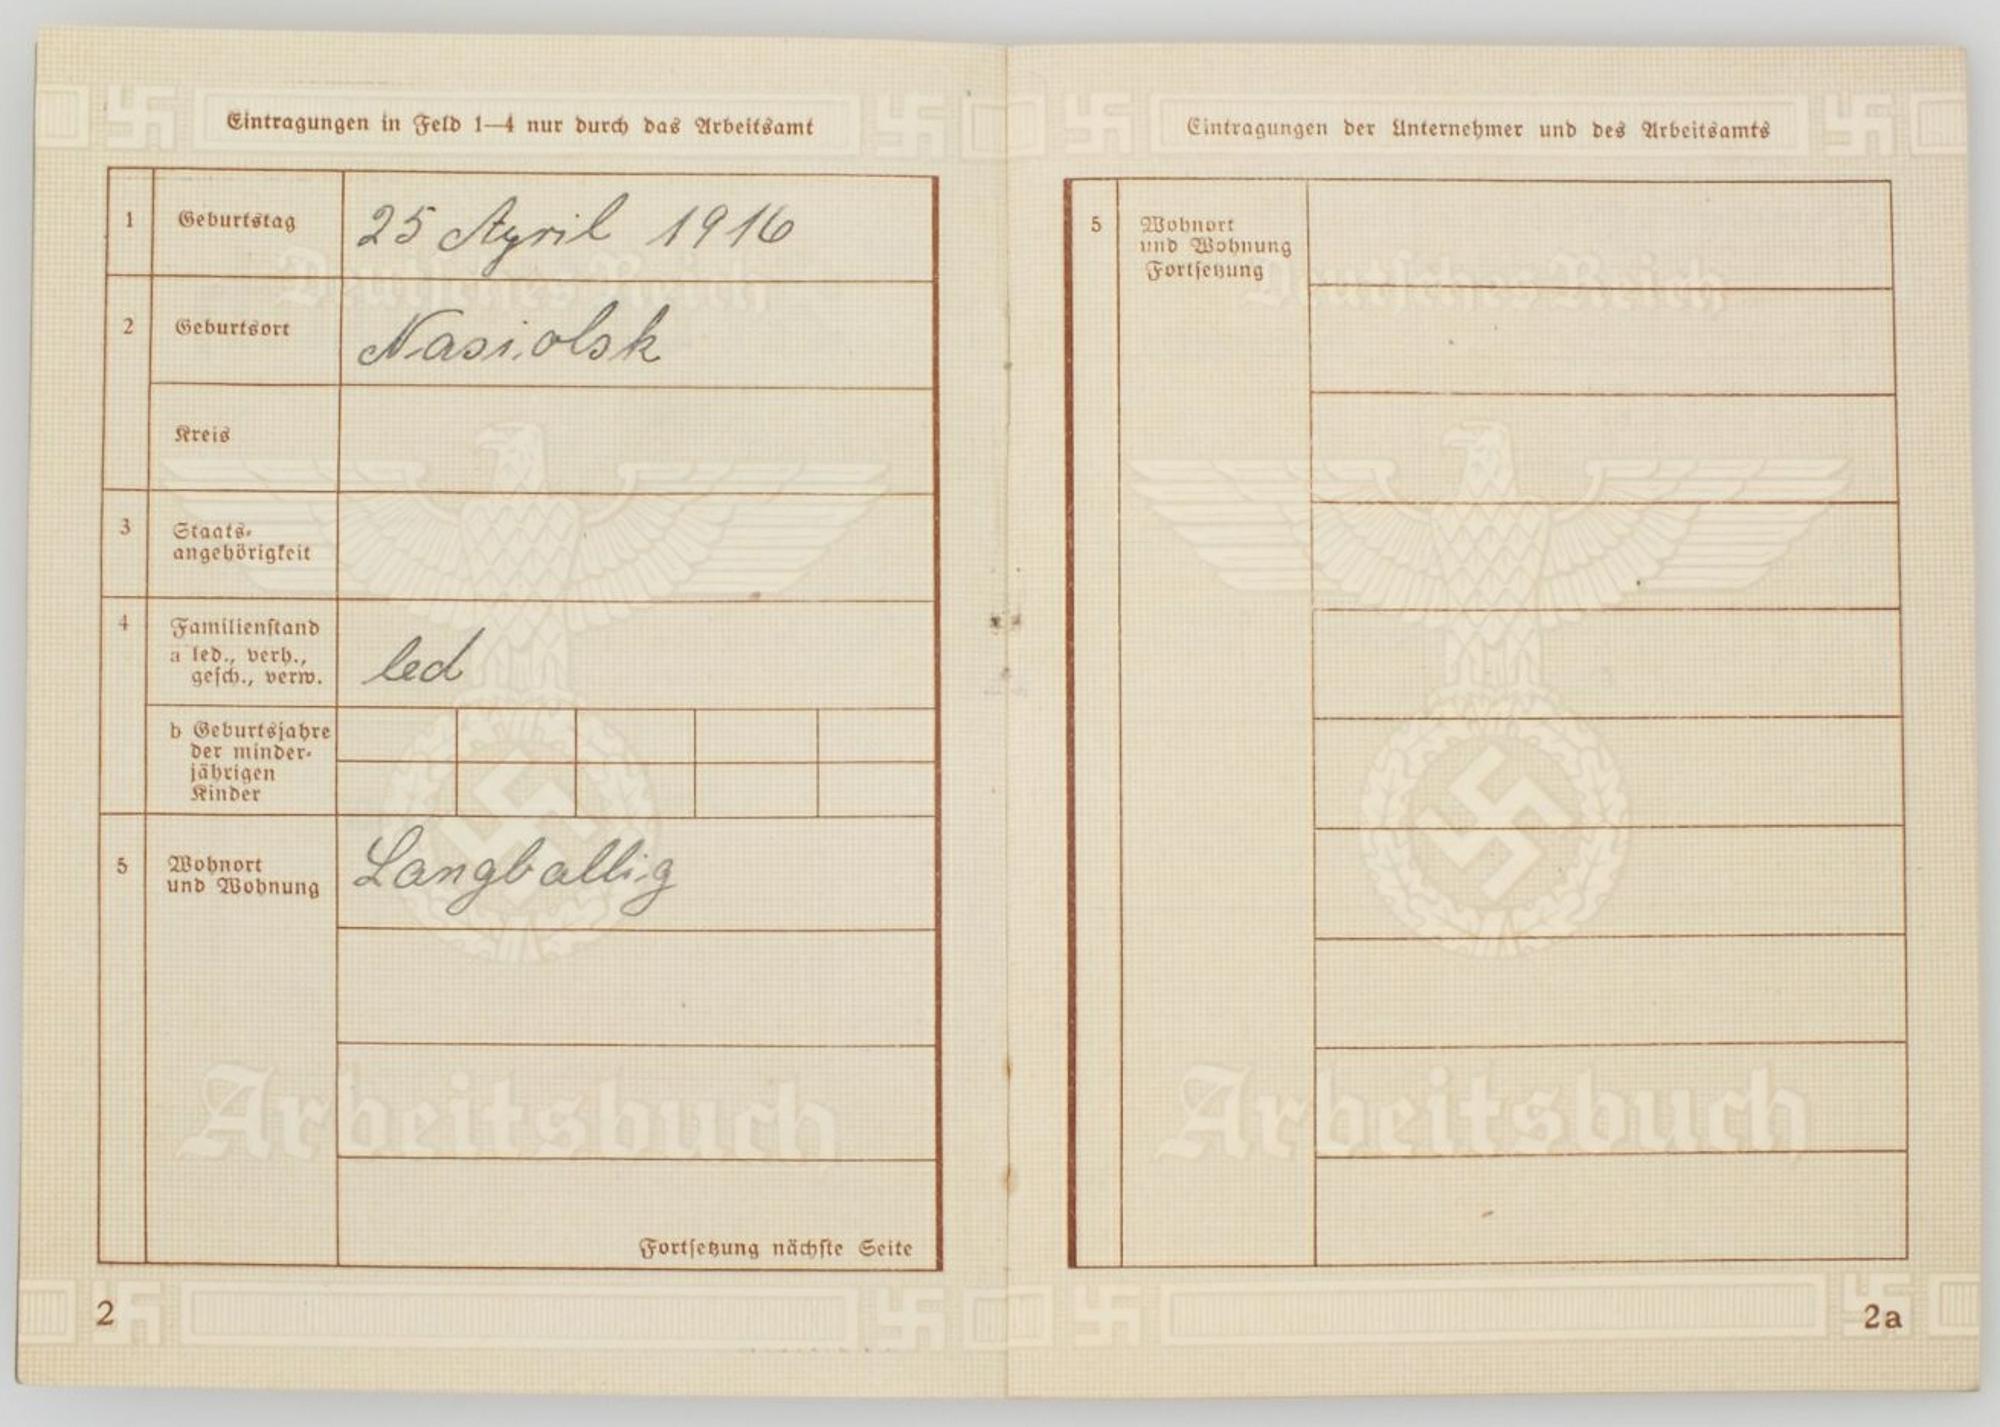 Eintragungen in Feld 1—4 nur durch das Arbeitsamt
1 Geburtstag 25 April 1916
Deutsches Reich
2 Geburtsort Nasiolsk
Kreis
3 Staats-
angehörigkeit
4 Familienstand
a led., verh.,
gesch., verw.
led
b Geburtsjahre
der minder-
jährigen
Kinder
5 Wohnort
und Wohnung
Langballig
Arbeitsbuch
Fortsetzung nächste Seite
2
Eintragungen der Unternehmer und des Arbeitsamts
5 Wohnort
und Wohnung
Fortsetzung
Deutsches Reich
Arbeitsbuch
2a